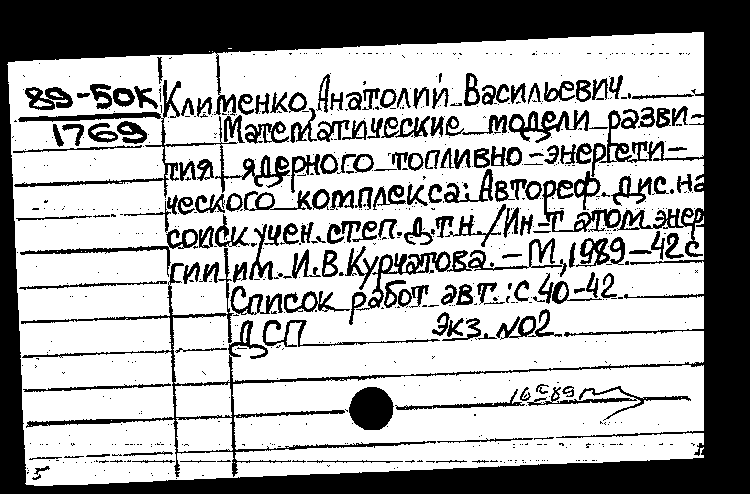 89-50К Клименко, Анатолий Васильевич.
1769 Математические модели разви-
тия ядерного топливно-энергети-
ческого комплекса: Автореф. дис. на
соиск учен. степ. д.т.н. /Ин-т атом. энер
гии им. И.В. Курчатова. – М., 1989 – 42 с
Список работ авт.: с. 40-42.
ДСП Экз. №02.
5